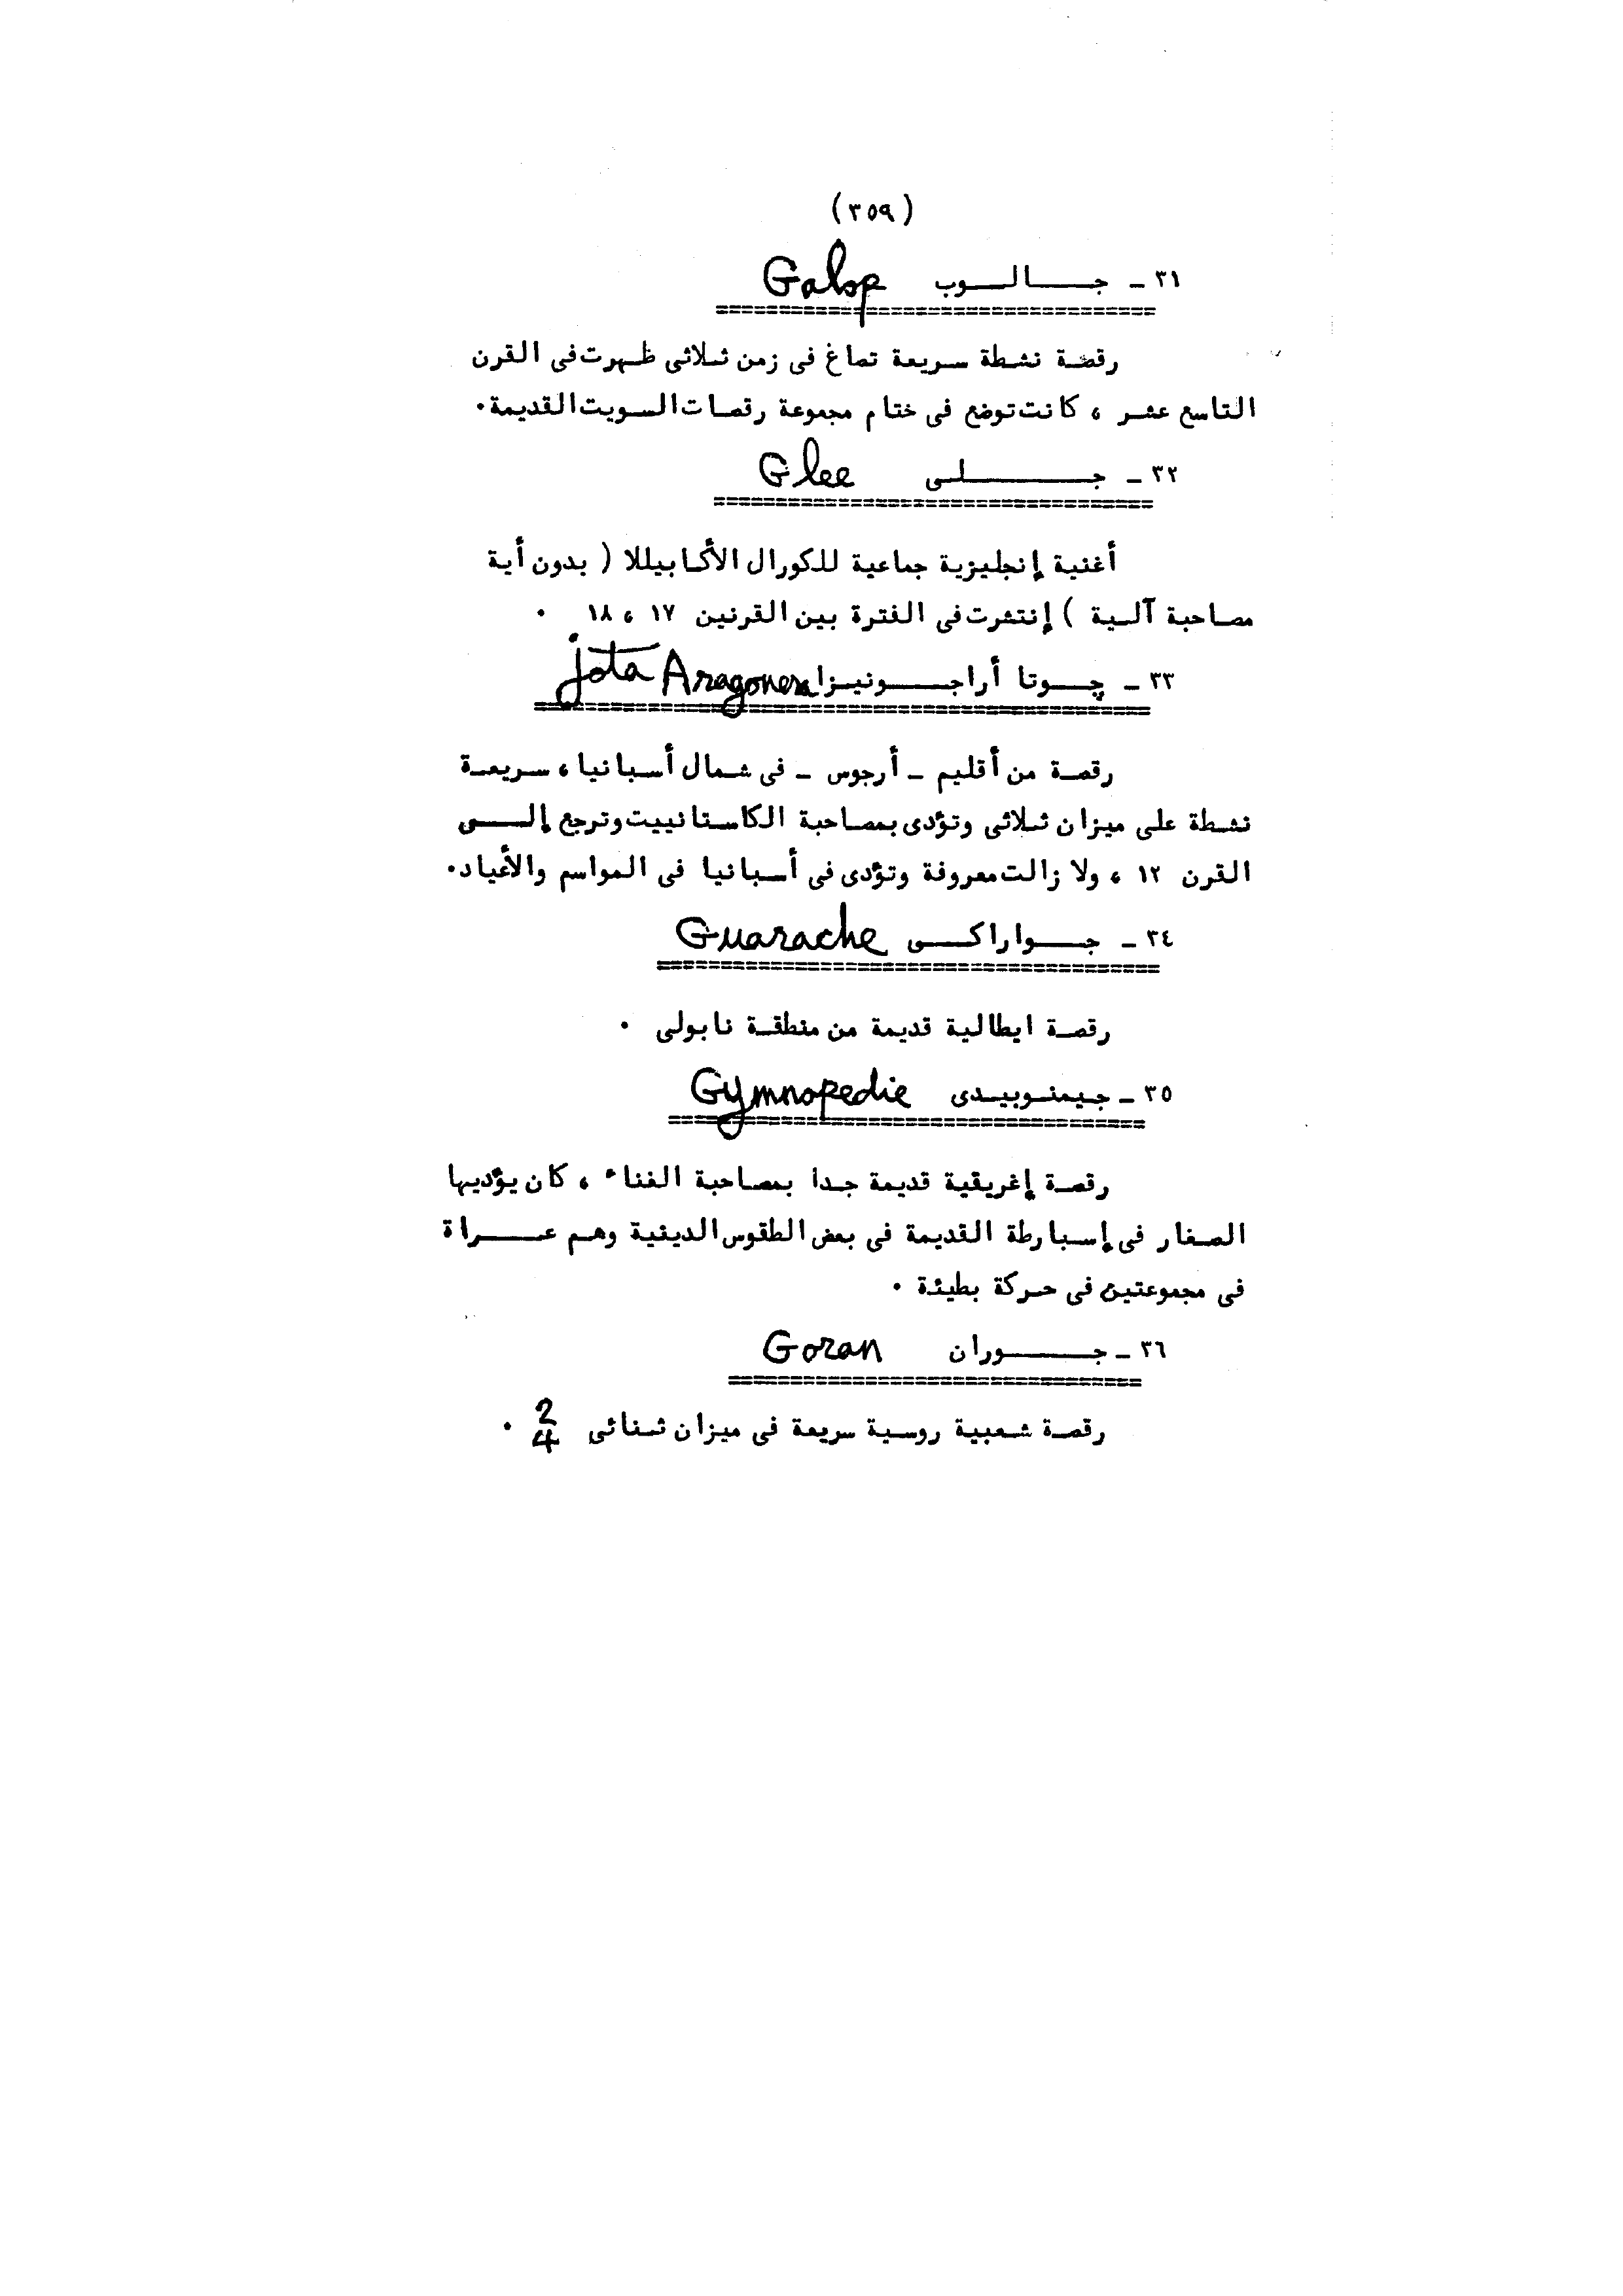 (٣٥٩)
٣١ - جالوب Galop
رقصة نشطة سريعة تصاغ فى زمن ثلاثى ظهرت فى القرن
التاسع عشر ، كانت توضع فى ختام مجموعة رقصات السويت القديمة.
٣٢ - جلى Glee
أغنية إنجليزية جماعية للكورال الأكابيللا ( بدون أية
مصاحبة آلية ) إنتشرت فى الفترة بين القرنين ١٧ ، ١٨ .
٣٣ - چوتا أراجونيزا Jota Aragonesa
رقصة من أقليم - أرجوس - فى شمال أسبانيا ، سريعة
نشطة على ميزان ثلاثى وتؤدى بمصاحبة الكاستانييت وترجع إلى
القرن ١٢ ، ولا زالت معروفة وتؤدى فى أسبانيا فى المواسم والأعياد.
٣٤ - جواراكى Guarache
رقصة ايطالية قديمة من منطقة نابولى .
٣٥ - جيمنوبيدى Gymnopedie
رقصة إغريقية قديمة جدا بمصاحبة الغناء ، كان يؤديها
الصغار فى إسبارطة القديمة فى بعض الطقوس الدينية وهم عراة
فى مجموعتين فى حركة بطيئة .
٣٦ - جوران Goran
رقصة شعبية روسية سريعة فى ميزان ثنائى 2/4 .